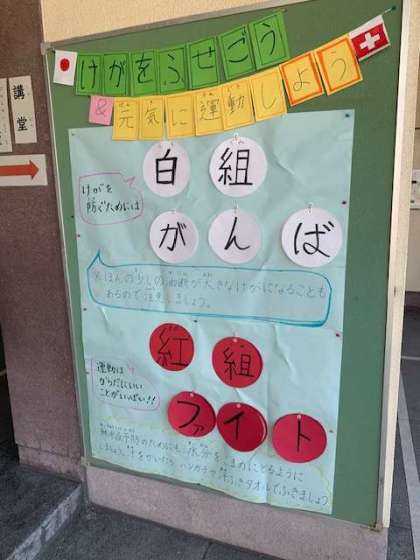 けがをふせごう
&元気に運動しよう
講堂
白組
がんば
けがを
防ぐためには
※ほんの少しの油断が大きなけがになることも
あるので注意しましょう。
紅組
ファイト
運動は
からだにいい
ことがいっぱい!!
熱中症予防のためにも、水分をこまめにとるように
しましょう。汗をかいたら、ハンカチや汗ふきタオルでふきましょう